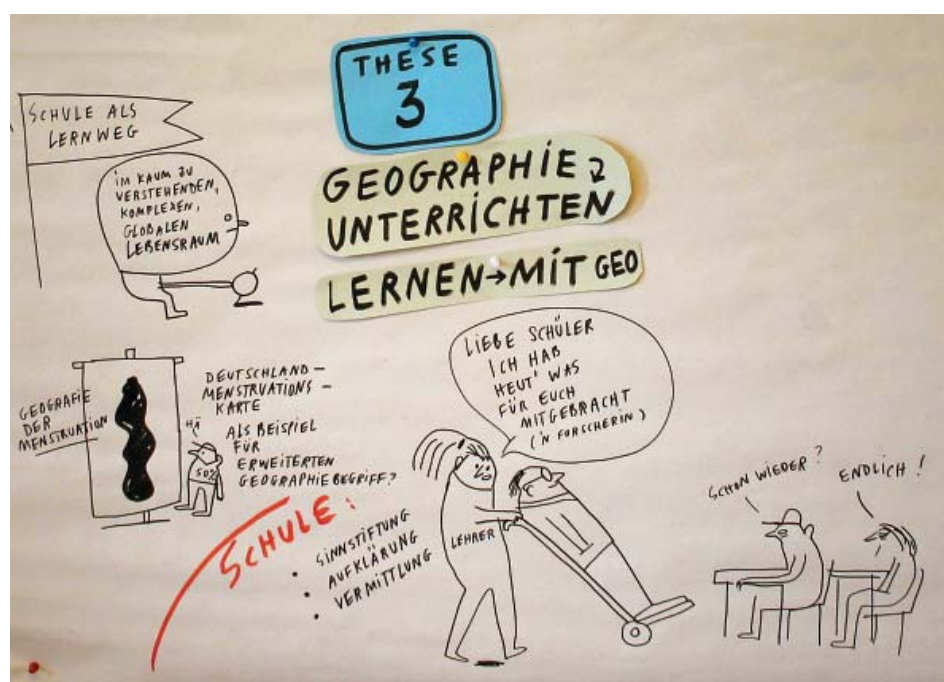 THESE
3
GEOGRAPHIE
UNTERRICHTEN
LERNEN → MIT GEO
SCHULE ALS
LERNWEG
IM KAUM ZU
VERSTEHENDEN,
KOMPLEXEN,
GLOBALEN
LEBENSRAUM
GEOGRAFIE
DER
MENSTRUATION
DEUTSCHLAND-
MENSTRUATIONS-
KARTE
ALS BEISPIEL
FÜR
ERWEITERTEN
GEOGRAPHIEBEGRIFF?
HÄ
50%
SCHULE:
• SINNSTIFTUNG
• AUFKLÄRUNG
• VERMITTLUNG
LIEBE SCHÜLER
ICH HAB
HEUT' WAS
FÜR EUCH
MITGEBRACHT
('N FORSCHERIN)
LEHRER
SCHON WIEDER?
ENDLICH!